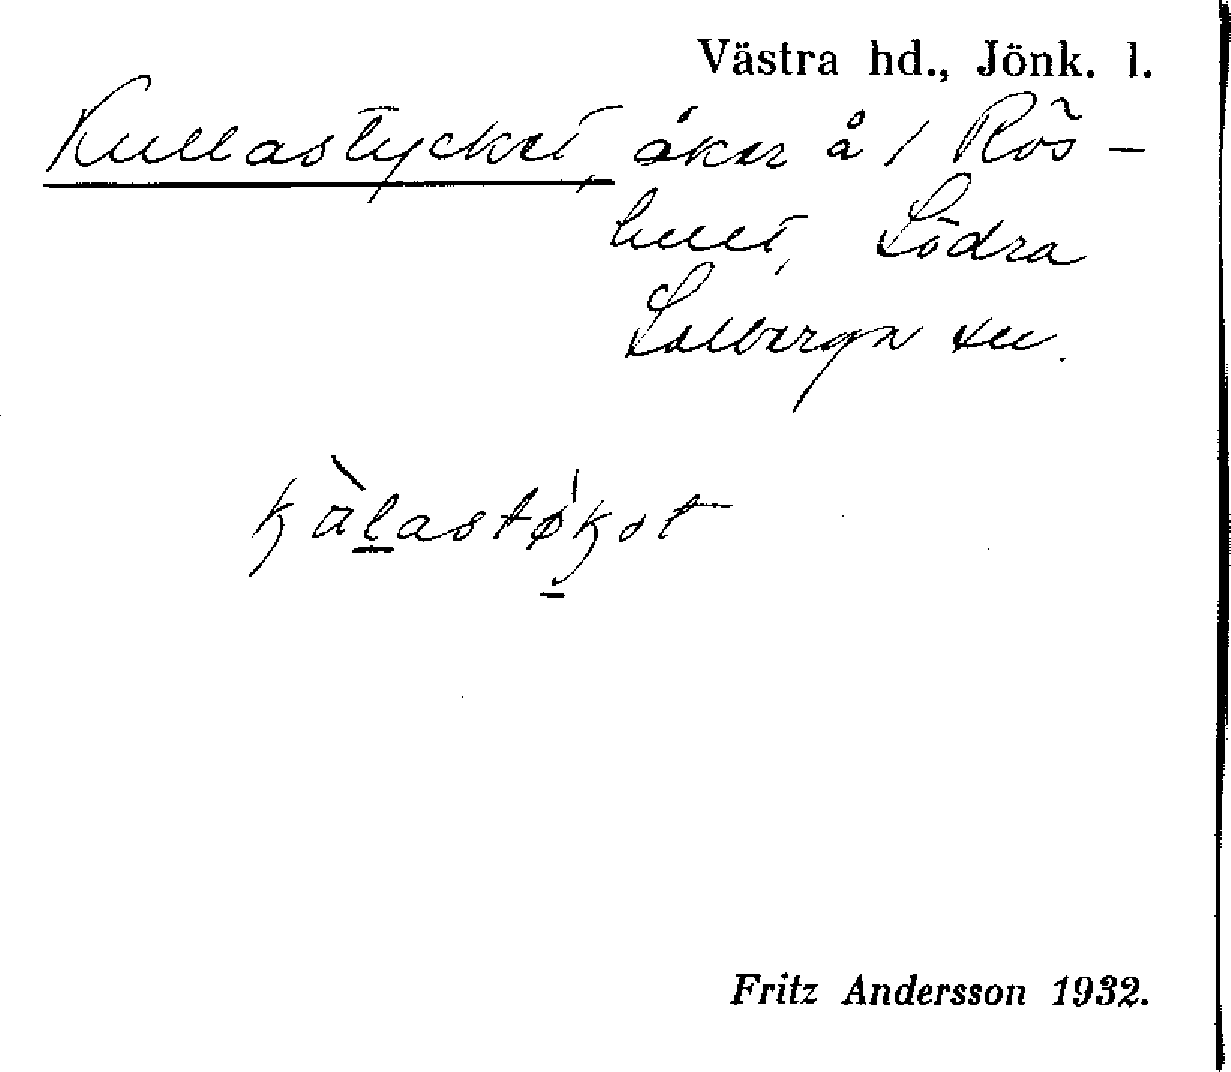 Västra hd., Jönk. l.
Kullastycket, åker å 1 Rös-
hult, Södra
Solberga sn.
kälastøkot
Fritz Andersson 1932.